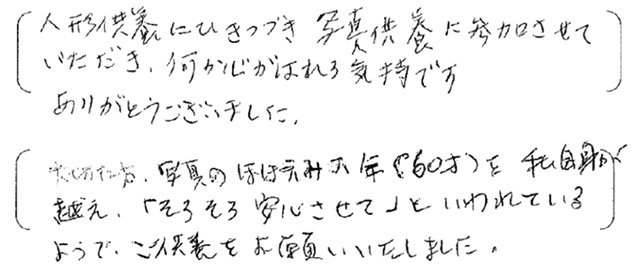 人形供養にひきつづき 写真供養に参加させて
いただき、何か心がはれる気持です
ありがとうございました。
写真のほほえみ 年(60才)を 私自身が
越え、「そろそろ安心させて」といわれている
ようで、ご供養をお願いいたしました。